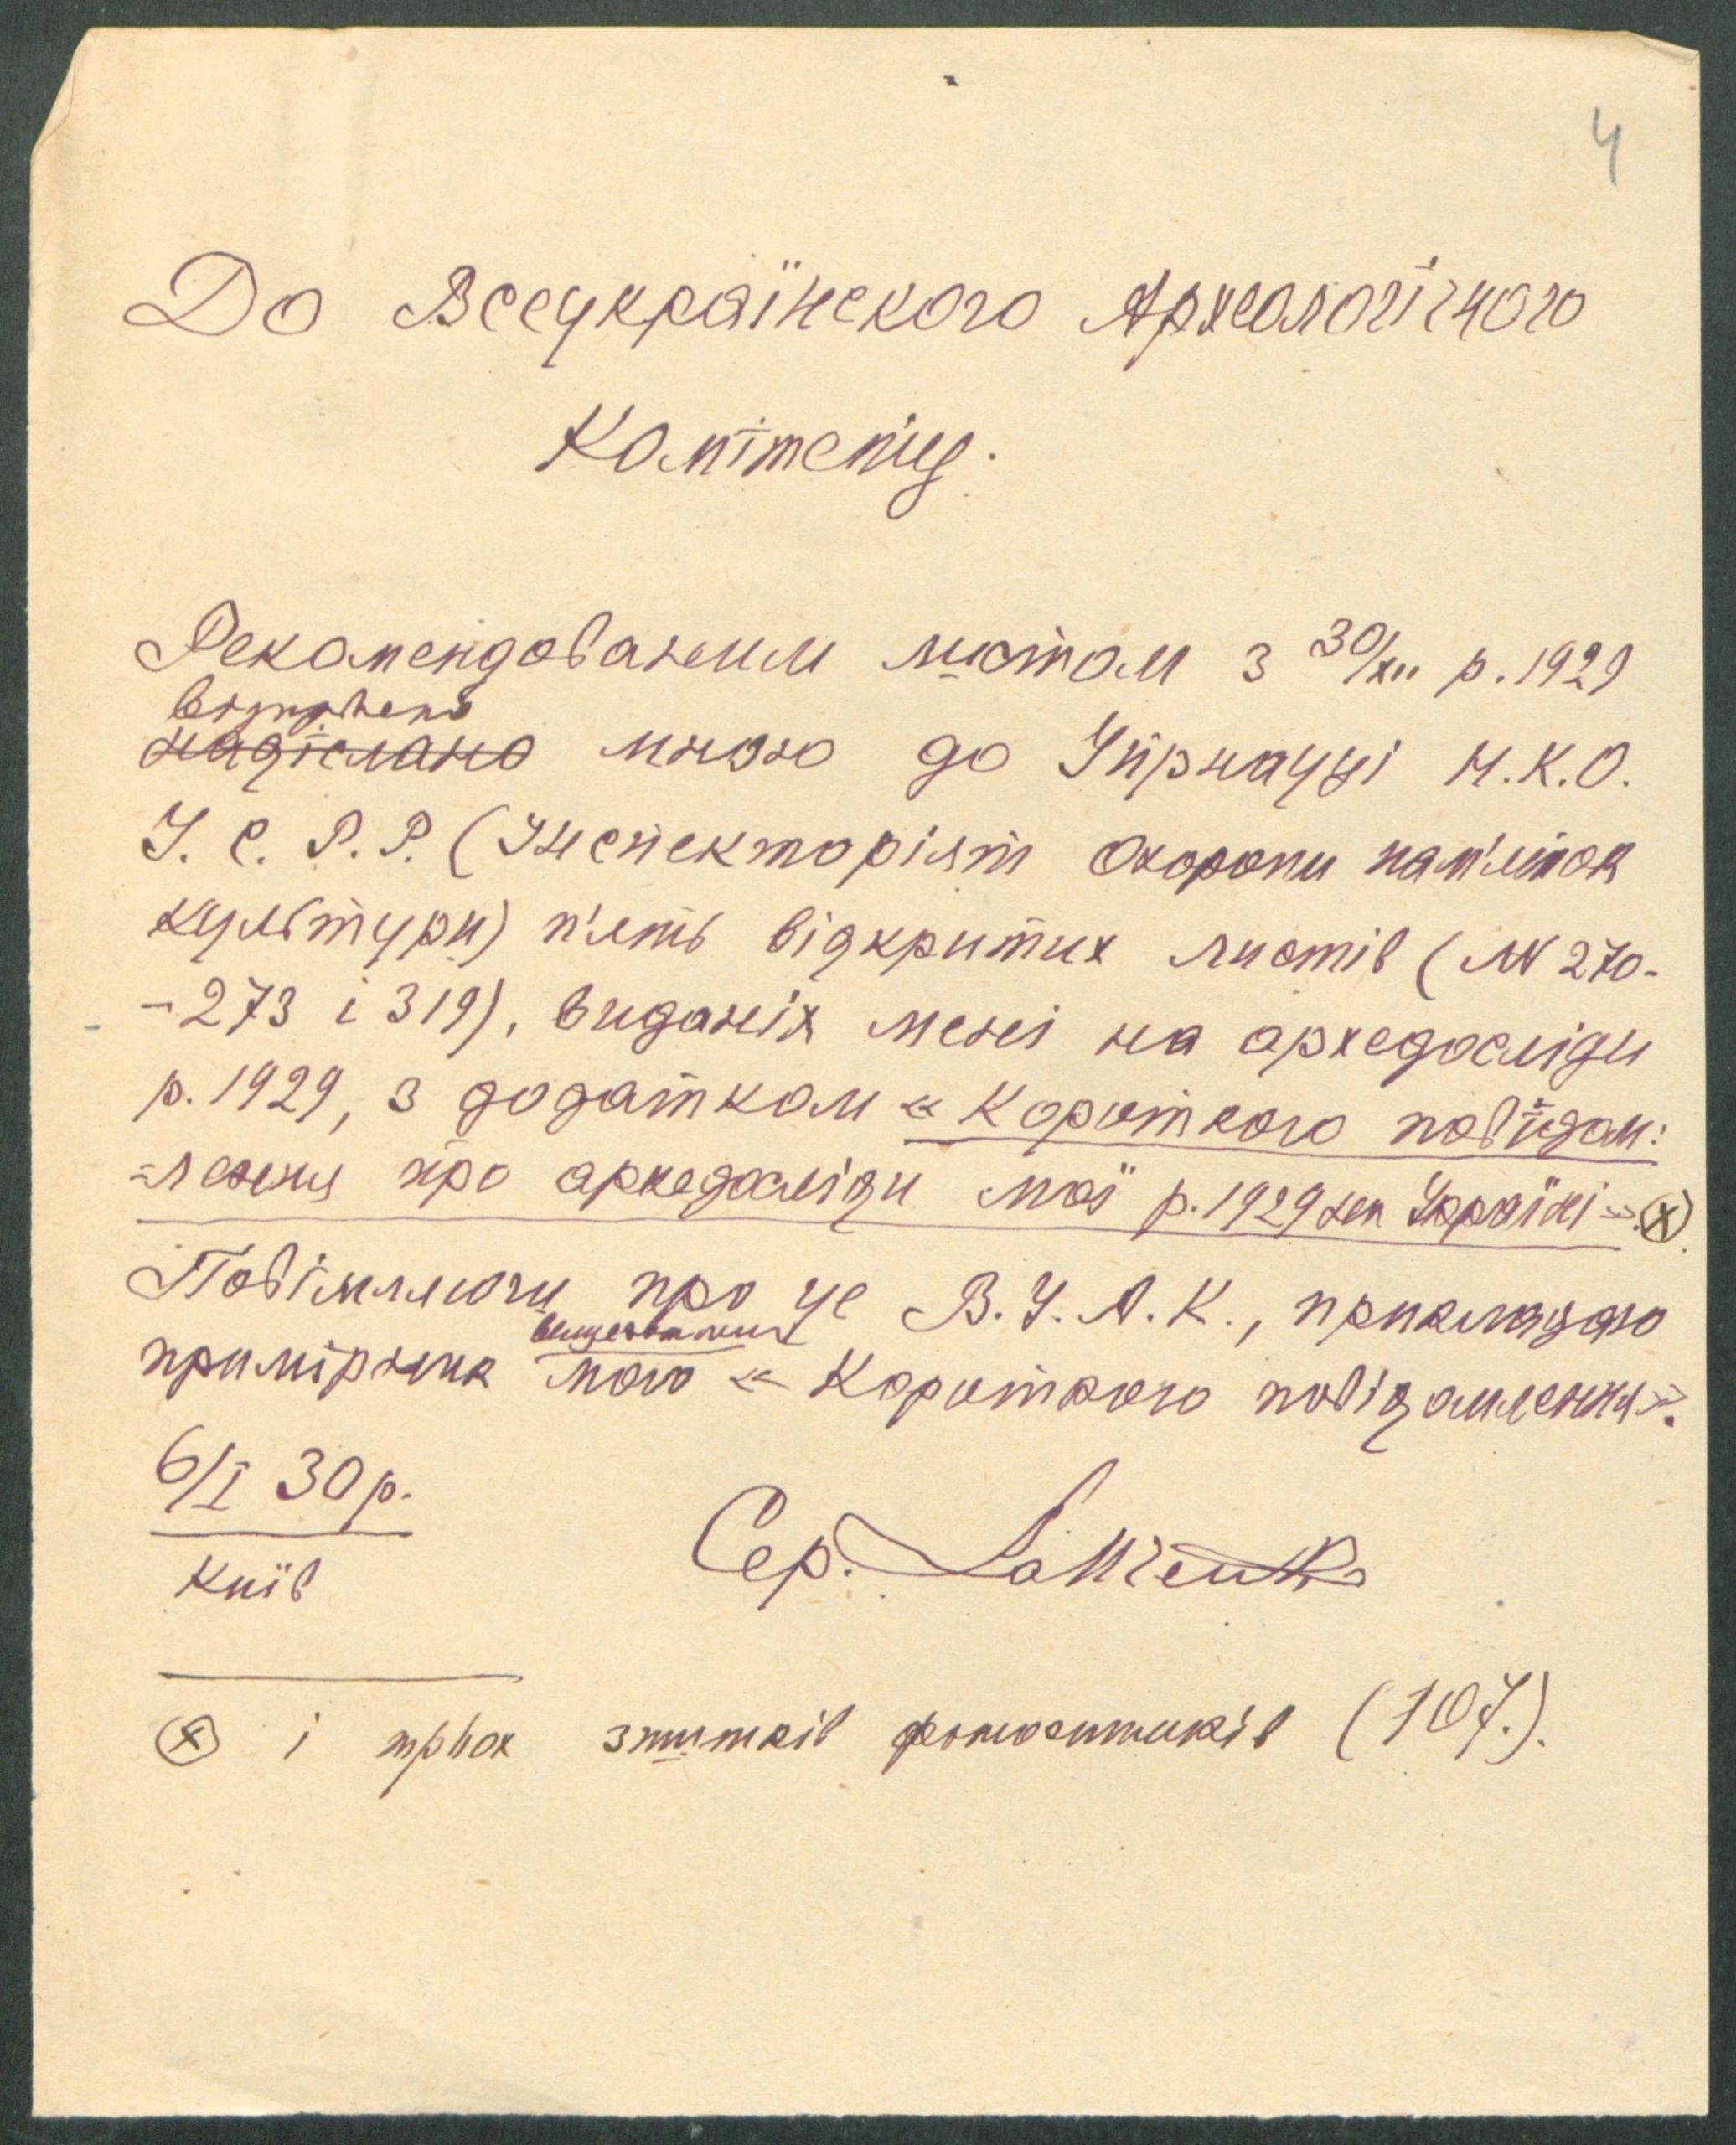 4
До Всеукраїнського Археологічного
Комітету.
Рекомендованим листом з 30/XII р. 1929
відправлено
надіслано мною до Упрнауці Н.К.О.
У. С. Р. Р. (Інспекторіят Охорони пам'яток
культури) п'ять відкритих листів (№№ 270-
-273 і 319), виданіх мені на археодосліди
р. 1929, з додатком «Короткого повідом:
=лення про археодосліди мої р. 1929 на Україні». (x)
Повідомляючи про це В.У.А.К., прикладаю
вищезгаданого
примірник мого «Короткого повідомлення».
6/I 30 р.
Київ
Сер. Гамченко
(x) і трьох зшитків фотознимків (107).